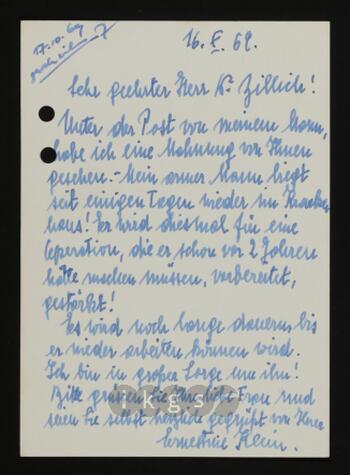 17.10.69
16. X. 69.
Sehr geehrter Herr Dr Zillich!
Unter der Post von meinem Mann,
habe ich eine Mahnung von Ihnen
gesehen. - Mein armer Mann liegt
seit einigen Tagen wieder im Kranken
haus! Er wird diesmal für eine
Operation, die er schon vor 2 Jahren
hätte machen müssen, vorbereitet,
gestärkt!
Es wird noch lange dauern, bis
er wieder arbeiten können wird.
Ich bin in großer Sorge um ihn!
Bitte grüßen Sie Ihre liebe Frau und
seien Sie selbst herzlichst gegrüßt von Ihrer
Ernestine Klein.
kgs